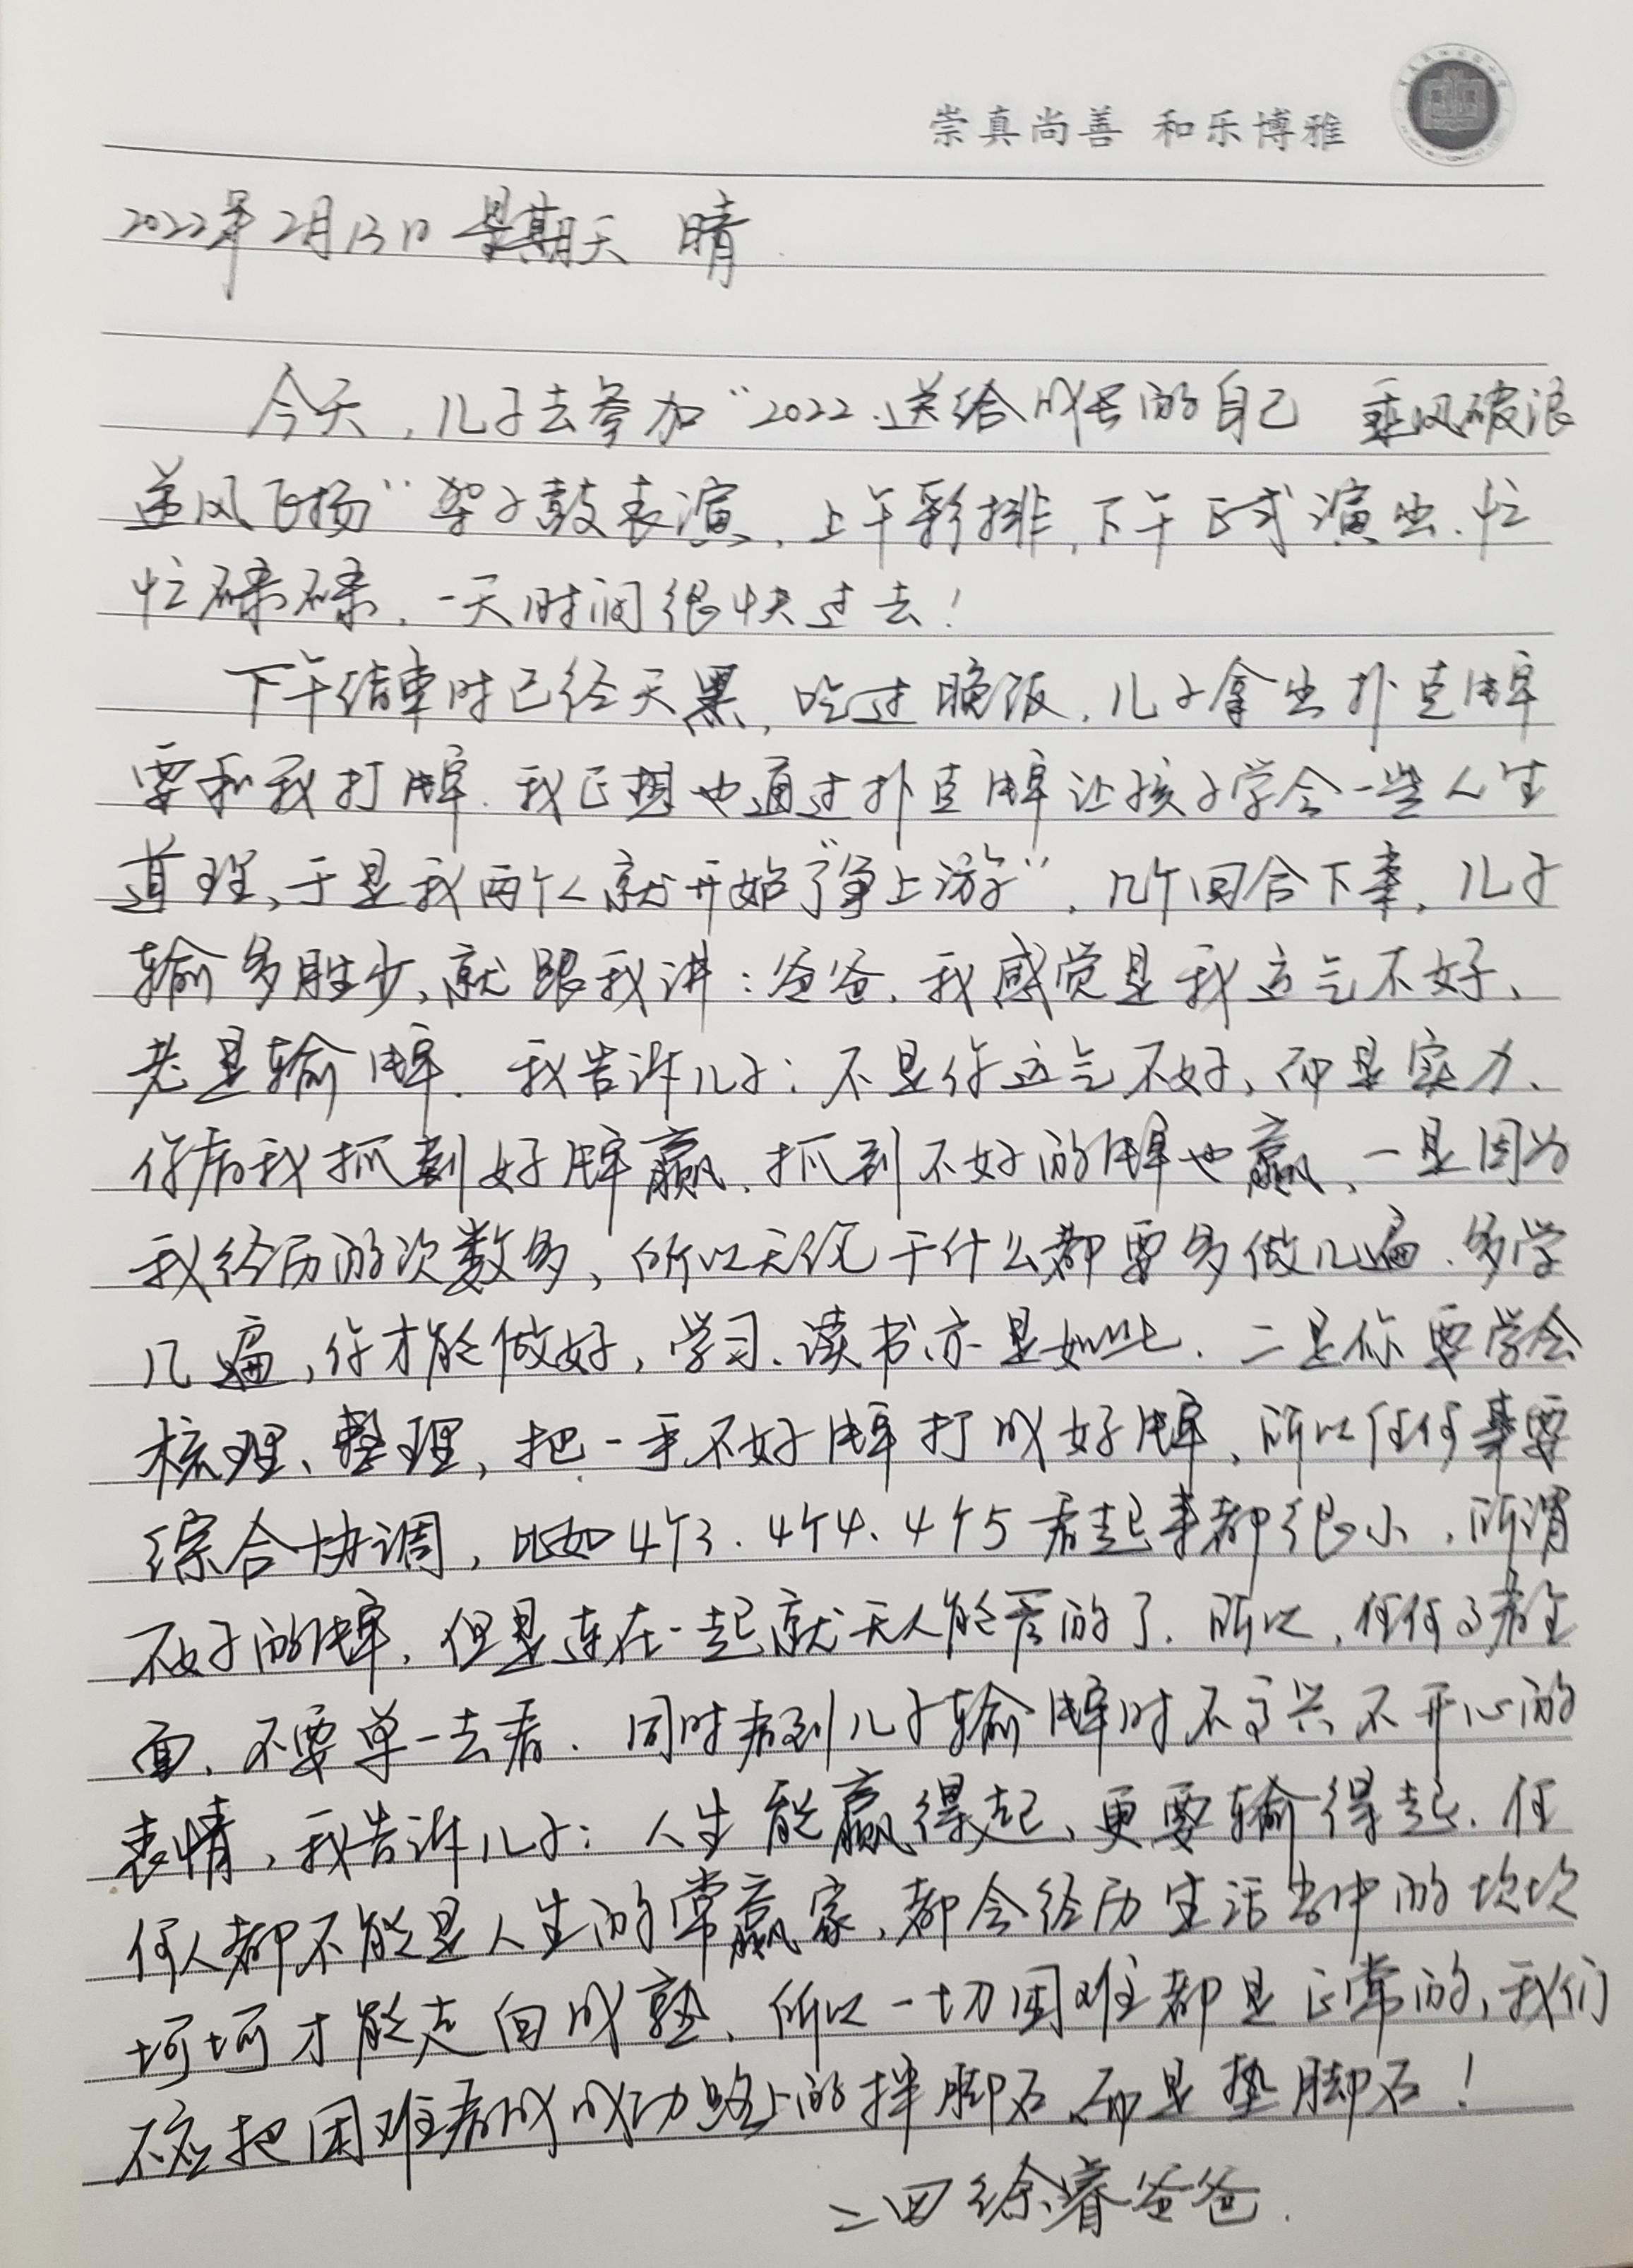 崇真尚善 和乐博雅
2022年2月13日 星期天 晴
今天，儿子去参加“2022.送给成长的自己 乘风破浪
逆风飞扬”架子鼓表演，上午彩排，下午正式演出，忙
忙碌碌，一天时间很快过去！
下午结束时已经天黑，吃过晚饭，儿子拿出扑克牌
要和我打牌．我正想也通过扑克牌让孩子学会一些人生
道理，于是我两个人就开始了“争上游”，几个回合下来，儿子
输多胜少，就跟我讲：爸爸，我感觉是我运气不好，
老是输牌．我告诉儿子：不是你运气不好，而是实力，
你看我抓到好牌赢，抓到不好的牌也赢，一是因为
我经历的次数多，所以无论干什么都要多做几遍、多学
几遍，你才能做好，学习、读书亦是如此．二是你要学会
梳理、整理，把一手不好牌打成好牌，所以任何事要
综合协调，比如4个3、4个4、4个5看起来都很小，所谓
不好的牌，但是连在一起就无人能管的了．所以，任何事看全
面，不要单一去看．同时看到儿子输牌时不高兴不开心的
表情，我告诉儿子：人生能赢得起，更要输得起．任
何人都不能是人生的常赢家，都会经历生活当中的坎坎
坷坷才能走向成熟，所以一切困难都是正常的，我们
不应把困难看成成功路上的拌脚石，而是垫脚石！
二四徐睿爸爸．